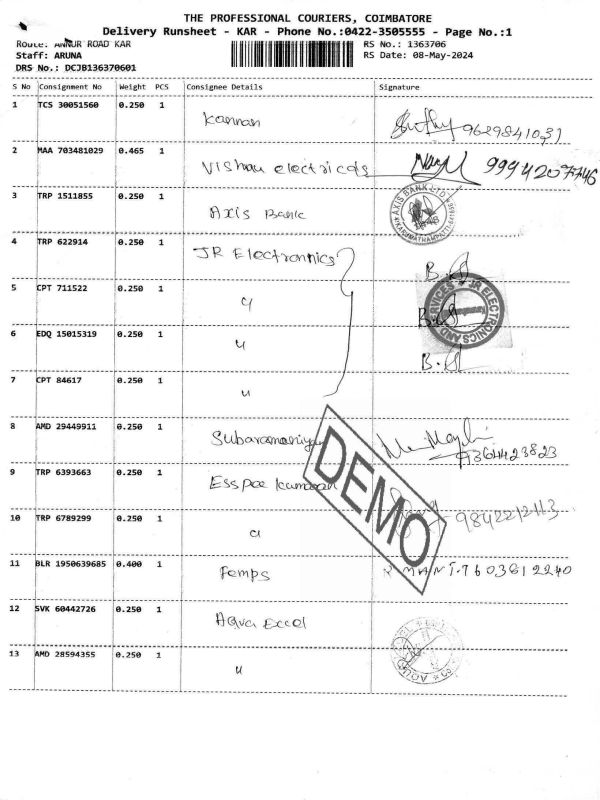 THE PROFESSIONAL COURIERS, COIMBATORE
Delivery Runsheet - KAR - Phone No.:0422-3505555 - Page No.:1
Route: ANNUR ROAD KAR RS No.: 1363706
Staff: ARUNA RS Date: 08-May-2024
DRS No.: DCJB136370601
S No Consignment No Weight PCS Consignee Details Signature
1 TCS 30051560 0.250 1 Kannan 9629841031
2 MAA 703481029 0.465 1 Vishnu electricals 9994207746
3 TRP 1511855 0.250 1 Axis Bank AXIS BANK LTD
4 TRP 622914 0.250 1 JR Electronnics B.
5 CPT 711522 0.250 1 " B. JR ELECTRONICS AND SERVICES
6 EDQ 15015319 0.250 1 " B.
7 CPT 84617 0.250 1 "
8 AMD 29449911 0.250 1 Subaramaniyan 9364423823
9 TRP 6393663 0.250 1 Esspee
10 TRP 6789299 0.250 1 "
11 BLR 1950639685 0.400 1 Femps R MANI.7603812240
12 SVK 60442726 0.250 1 Aqva Excel
13 AMD 28594355 0.250 1 "
DEMO